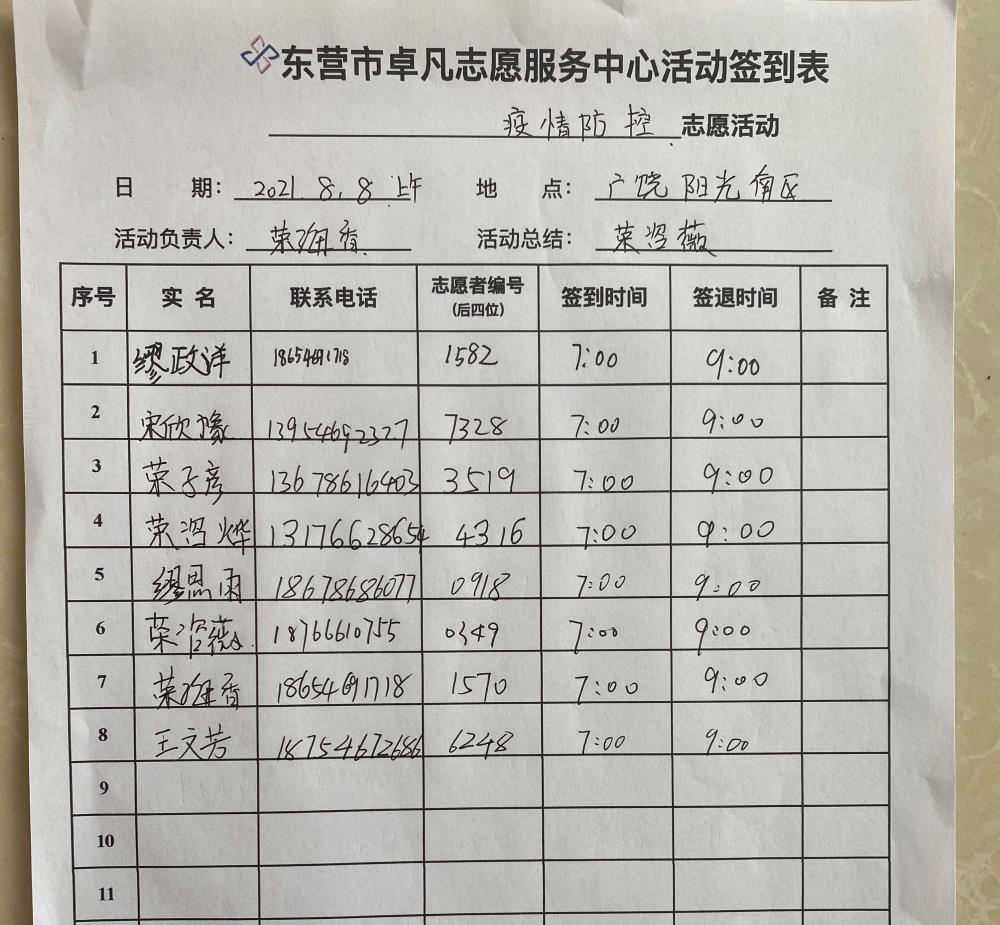 东营市卓凡志愿服务中心活动签到表
疫情防控 志愿活动
日 期: 2021.8.8上午 地 点: 广饶阳光南区
活动负责人: 荣海香 活动总结: 荣滔薇
序号 实 名 联系电话 志愿者编号 (后四位) 签到时间 签退时间 备 注
1 缪政洋 18654691718 1582 7:00 9:00
2 宋欣豫 13954692327 7328 7:00 9:00
3 荣子彦 13678616403 3519 7:00 9:00
4 荣滔烨 13176628654 4316 7:00 9:00
5 缪思雨 18678686077 0918 7:00 9:00
6 荣滔薇 18766610755 0349 7:00 9:00
7 荣海香 18654691718 1570 7:00 9:00
8 王文芳 18754672686 6248 7:00 9:00
9
10
11